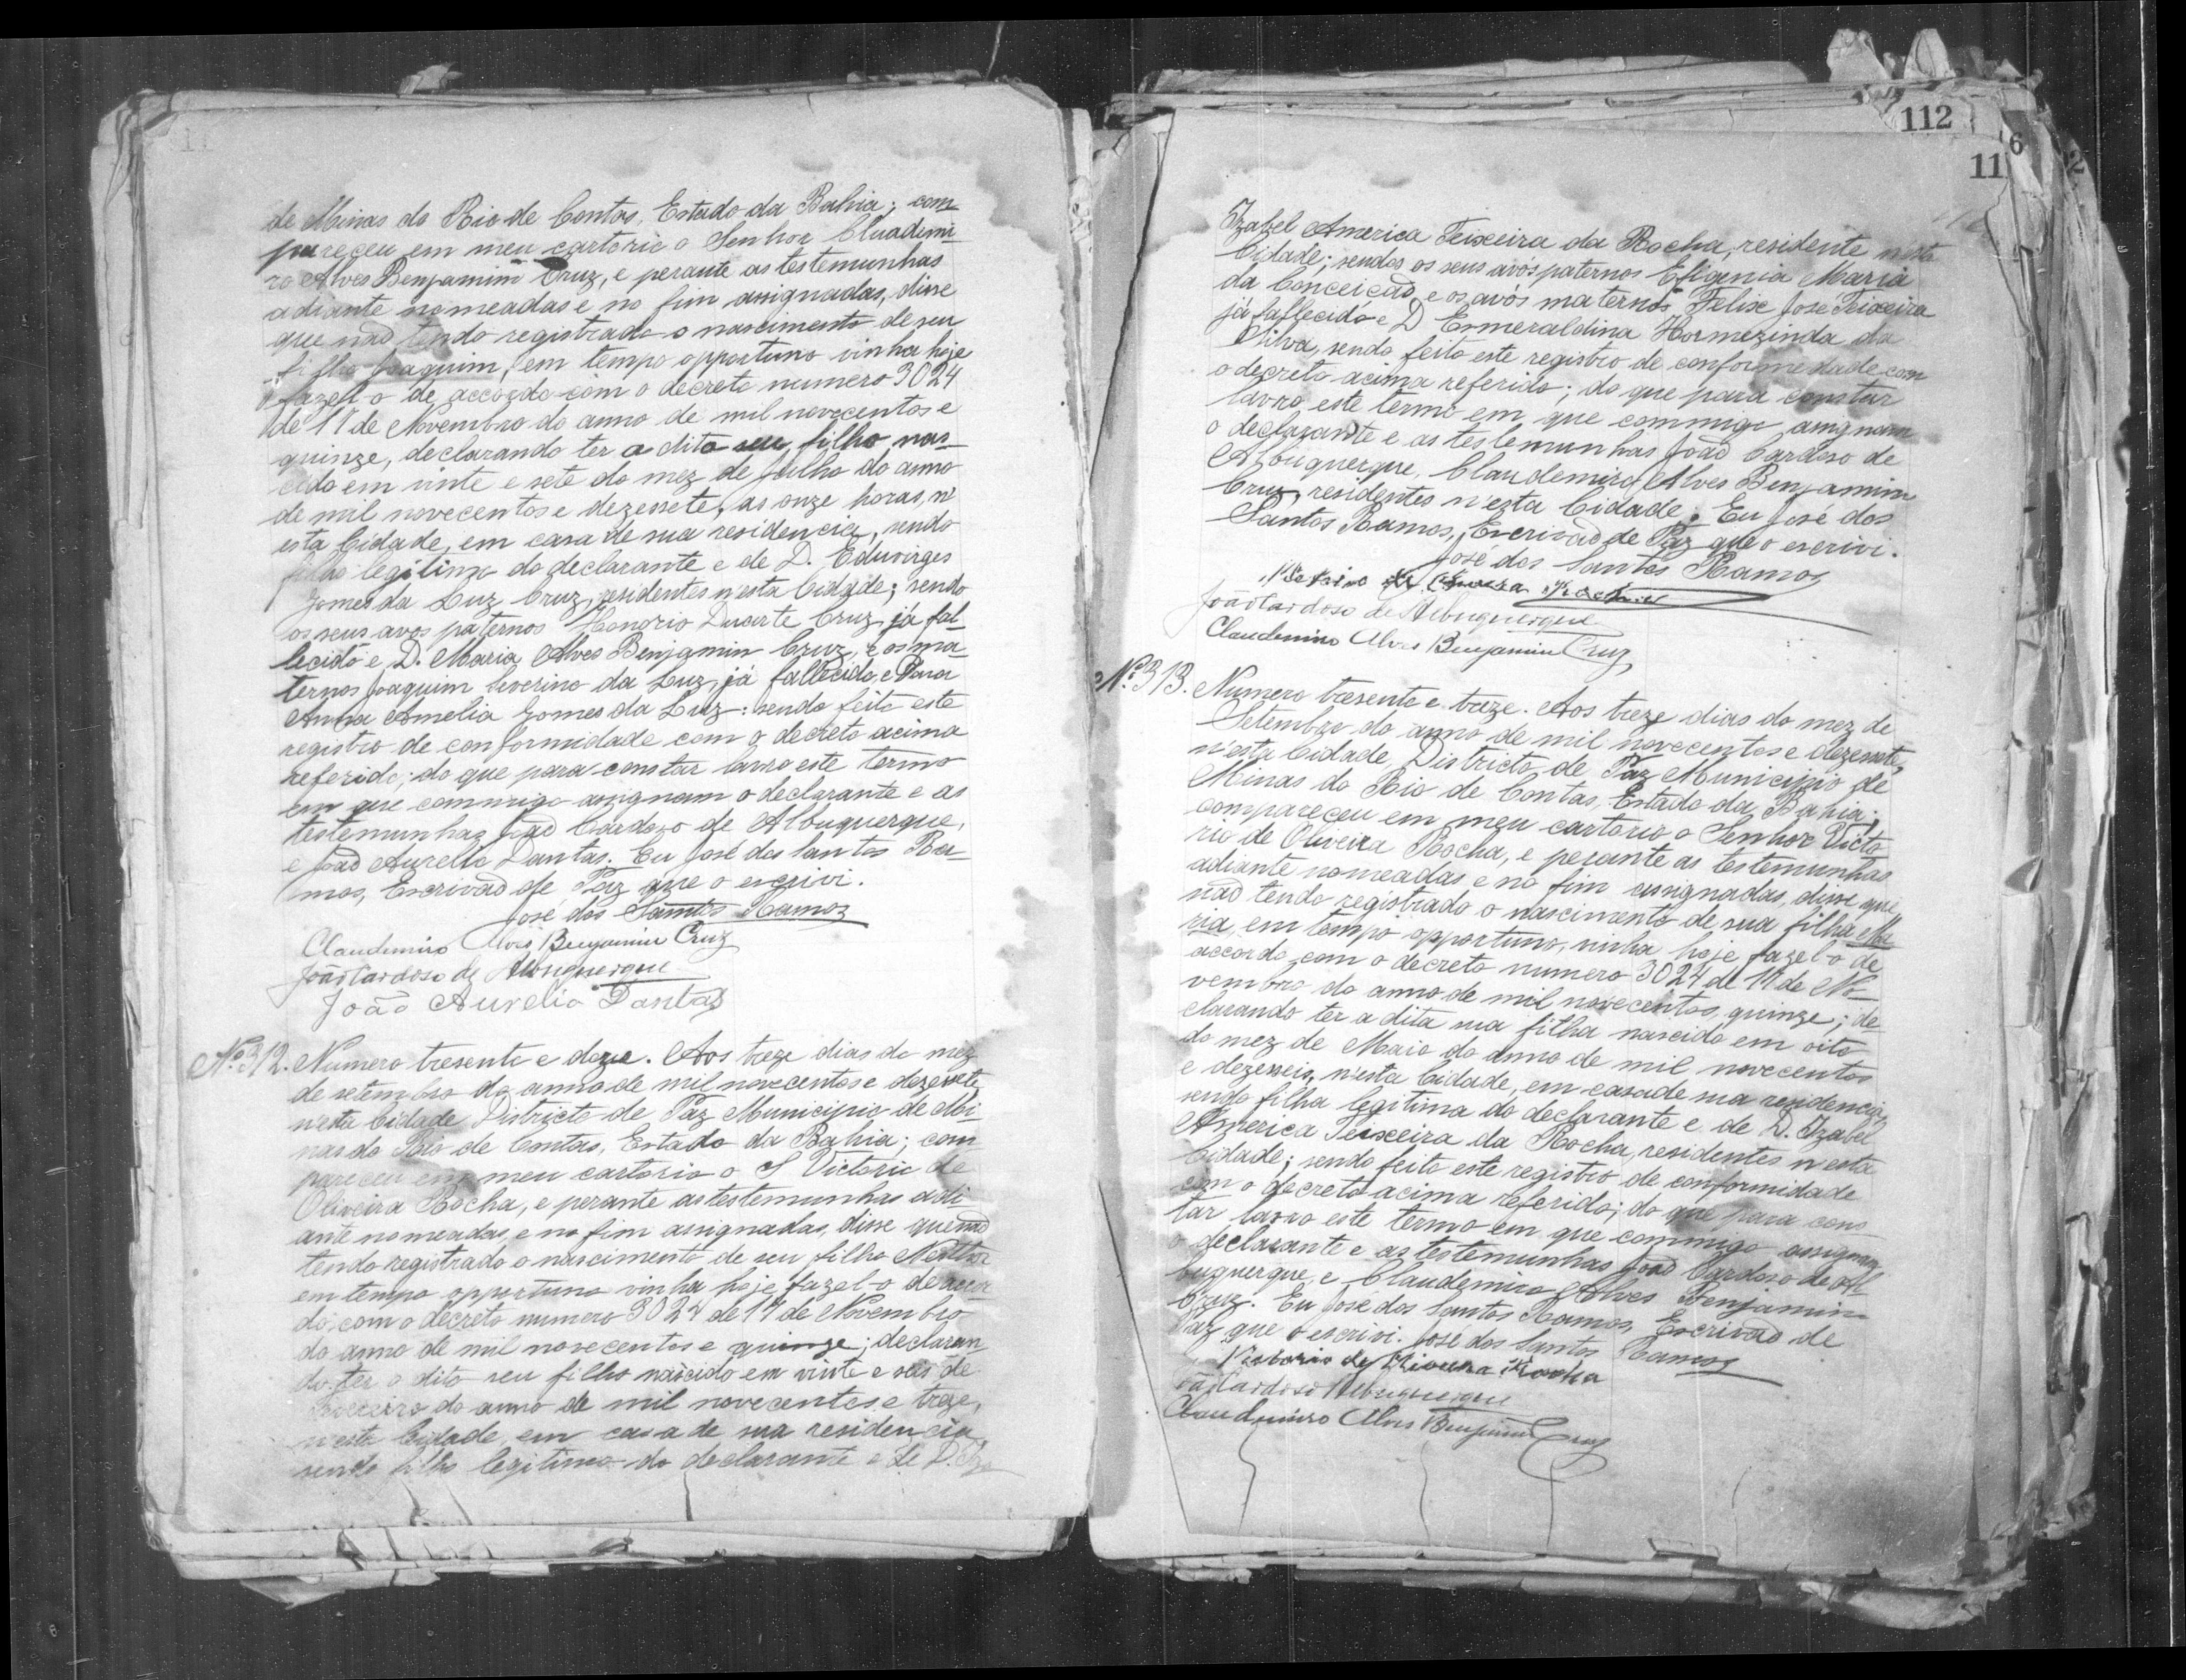 de Minas do Rio de Contas, Estado da Bahia; com
pareceu em meu cartorio o Senhor Cluademi-
ro Alves Benjamim Cruz, e perante as testemunhas
adiante nomeadas e no fim assignadas, disse
que não tendo registrado o nascimento de seu
filho Joaquim, em tempo opportuno vinha hoje
fazel-o de accordo com o decreto numero 3024
de 17 de Novembro do anno de mil novecentos e
quinze, declarando ter o dito seu filho nas-
cido em vinte e sete do mez de Julho do anno
de mil novecentos e dezessete, as onze horas, n'
esta Cidade, em casa de sua residencia, sendo
filho legitimo do declarante e de D. Eduvirges
Gomes da Luz Cruz, residentes n'esta Cidade; sendo
os seus avos paternos Honorio Duarte Cruz, já fal-
lecido e D. Maria Alves Benjamin Cruz, e os ma-
ternos Joaquim Severino da Luz, já fallecido, e Dona
Anna Amelia Gomes da Luz: sendo feito este
registro de conformidade com o decreto acima
referido; do que para constar lavro este termo
em que commigo assignam o declarante e as
testemunhas João Cardozo de Albuquerque,
e João Aurelio Dantas. Eu José dos Santos Ra-
mos, Escrivão de Paz que o escrivi.
José dos Santos Ramos
Claudemiro Alves Benjamin Cruz
João Cardoso de Albuquerque
João Aurelio Dantas
Nº 312. Numero tresente e doze. Aos treze dias do mez
de setembro do anno de mil novecentos e dezessete,
n'esta Cidade Districto de Paz Municipio de Mi-
nas do Rio de Contas, Estado da Bahia; com
pareceu em meu cartorio o S Victorio de
Oliveira Rocha, e perante as testemunhas adi-
ante nomeadas, e no fim assignadas, disse que não
tendo registrado o nascimento de seu filho Nestor
em tempo opportuno vinha hoje fazel-o de accor
do com o decreto numero 3024 de 17 de Novembro
do anno de mil novecentos e quinze; declaran
do ter o dito seu filho nascido em vinte e seis de
do anno de mil novecentos e treze,
n'esta Cidade, em casa de sua residencia
sendo filho legitimo do declarante e de D. Iza
112
6
2
11
Izabel America Teixeira da Rocha, residente n'esta
Cidade; sendos os seus avós paternos Efigenia Maria
da Conceição, e os avós maternos Felix José Teixeira
já fallecido e D Esmeraldina Hormezinda da
Silva, sendo feito este registro de conformedade com
o decreto acima referido; do que para constar
lavro este termo em que commigo assignam
o declarante e as testemunhas João Cardoso de
Albuquerque, Claudemiro Alves Benjamim
Cruz, residentes n'esta Cidade. Eu José dos
Santos Ramos, Escrivão de Paz que o escrivi.
José dos Santos Ramos
Victorio de Oliveira Rocha
João Cardoso de Albuquerque
Claudemiro Alves Benjamin Cruz
Nº 313. Numero tresente e treze. Aos treze dias do mez de
Setembro do anno de mil novecentos e dezessete,
n'esta Cidade, Districto de Paz Municipio de
Minas do Rio de Contas, Estado da Bahia;
compareceu em meu cartorio o Senhor Victo
rio de Oliveira Rocha, e perante as testemunhas
adiante nomeadas e no fim assignadas, disse que
não tendo registrado o nascimento de sua filha Ma
ria, em tempo opportuno, vinha hoje fazel-o de
accordo com o decreto numero 3024 de 17 de No-
vembro do anno de mil novecentos quinze; de
clarando ter a dita sua filha nascido em oito
do mez de Maio do anno de mil novecentos
e dezesseis, n'esta Cidade, em casa de sua residencia,
sendo filha legitima do declarante e de D. Izabel
America Teixeira da Rocha, residentes n'esta
Cidade; sendo feito este registro de conformidade
com o decreto acima referido; do que para cons
tar lavro este termo em que commigo assignam
o declarante e as testemunhas João Cardoso de Al
buquerque, e Claudemiro Alves Benjamin
Cruz. Eu José dos Santos Ramos, Escrivão de
Paz que o escrivi. José dos Santos Ramos
Victorio de Oliveira Rocha
João Cardoso Albuquerque
Claudemiro Alves Benjamin Cruz